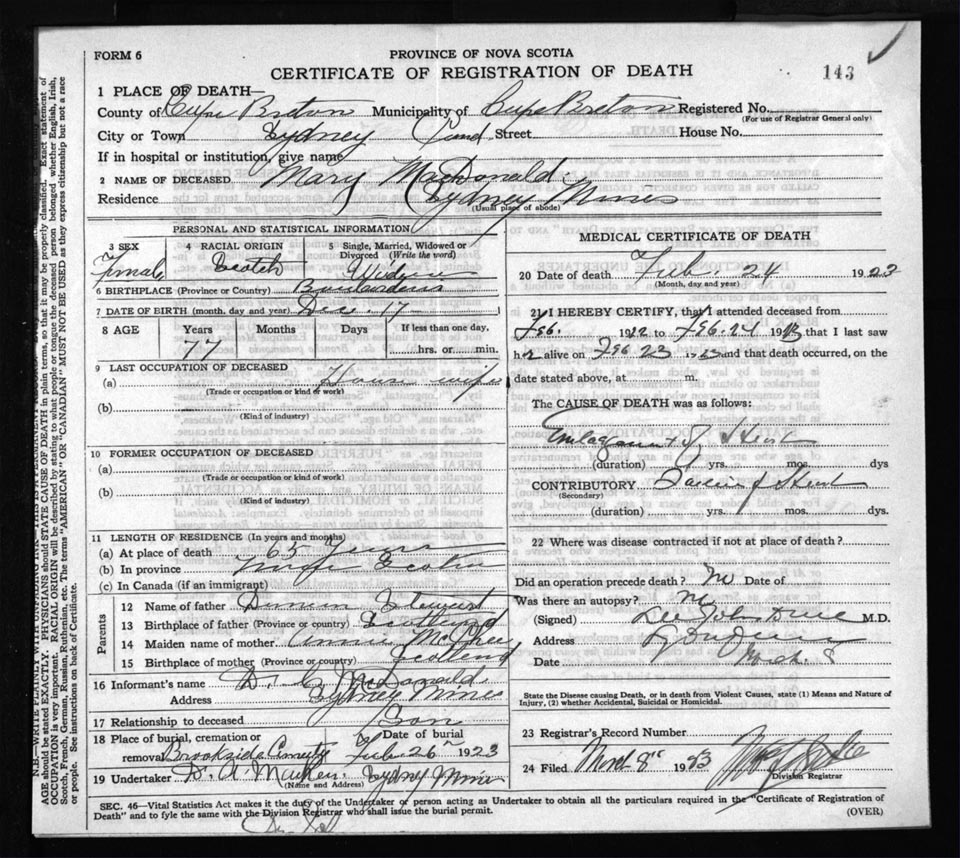 FORM 6
PROVINCE OF NOVA SCOTIA
CERTIFICATE OF REGISTRATION OF DEATH
143
1 PLACE OF DEATH—
County of Cape Breton Municipality of Cape Breton Registered No.
(For use of Registrar General only)
City or Town Sydney Street House No.
If in hospital or institution, give name
2 NAME OF DECEASED Mary MacDonald.
Residence Sydney Mines
(Usual place of abode)
PERSONAL AND STATISTICAL INFORMATION
3 SEX Female
4 RACIAL ORIGIN Scotch
5 Single, Married, Widowed or Divorced (Write the word) Widow
6 BIRTHPLACE (Province or Country) Boularderie
7 DATE OF BIRTH (month, day and year) Dec. 17
8 AGE Years Months Days If less than one day,
77 hrs. or min.
9 LAST OCCUPATION OF DECEASED
(a) House wife
(Trade or occupation or kind of work)
(b)
(Kind of industry)
10 FORMER OCCUPATION OF DECEASED
(a)
(Trade or occupation or kind of work)
(b)
(Kind of industry)
11 LENGTH OF RESIDENCE (In years and months)
(a) At place of death 65 Years
(b) In province Nova Scotia
(c) In Canada (if an immigrant)
Parents
12 Name of father Stewart
13 Birthplace of father (Province or country) Scotland
14 Maiden name of mother Annie
15 Birthplace of mother (Province or country) Scotland
16 Informant's name D. McDonald.
Address Sydney Mines
17 Relationship to deceased Son
18 Place of burial, cremation or removal Brookside Date of burial Feb 26 1923
19 Undertaker D. A. Sydney Mines
(Name and Address)
MEDICAL CERTIFICATE OF DEATH
20 Date of death Feb. 24 1923
(Month, day and year)
21 I HEREBY CERTIFY, that I attended deceased from
Feb. 19 to Feb. 24 19 that I last saw
her alive on Feb 23 1923 and that death occurred, on the
date stated above, at m.
The CAUSE OF DEATH was as follows:
of Heart
(duration) yrs. mos. dys
CONTRIBUTORY of Heart
(Secondary)
(duration) yrs. mos. dys.
22 Where was disease contracted if not at place of death?
Did an operation precede death? No Date of
Was there an autopsy? No
(Signed) M.D.
Address
Date March 8
State the Disease causing Death, or in death from Violent Causes, state (1) Means and Nature of
Injury, (2) whether Accidental, Suicidal or Homicidal.
23 Registrar's Record Number
24 Filed March 8 1923
Division Registrar
SEC. 46—Vital Statistics Act makes it the duty of the Undertaker or person acting as Undertaker to obtain all the particulars required in the "Certificate of Registration of
Death" and to fyle the same with the Division Registrar who shall issue the burial permit. (OVER)
AGE should be stated EXACTLY. PHYSICIANS should STATE CAUSE OF DEATH in plain terms, so that it may be properly classified. Exact statement of
OCCUPATION is very important. RACIAL ORIGIN will be described by stating to what people or tongue the deceased person belonged whether English, Irish,
Scotch, French, German, Russian, Ruthenian, etc. The terms "AMERICAN" OR "CANADIAN" MUST NOT BE USED as they express citizenship but not a race
or people. See instructions on back of Certificate.